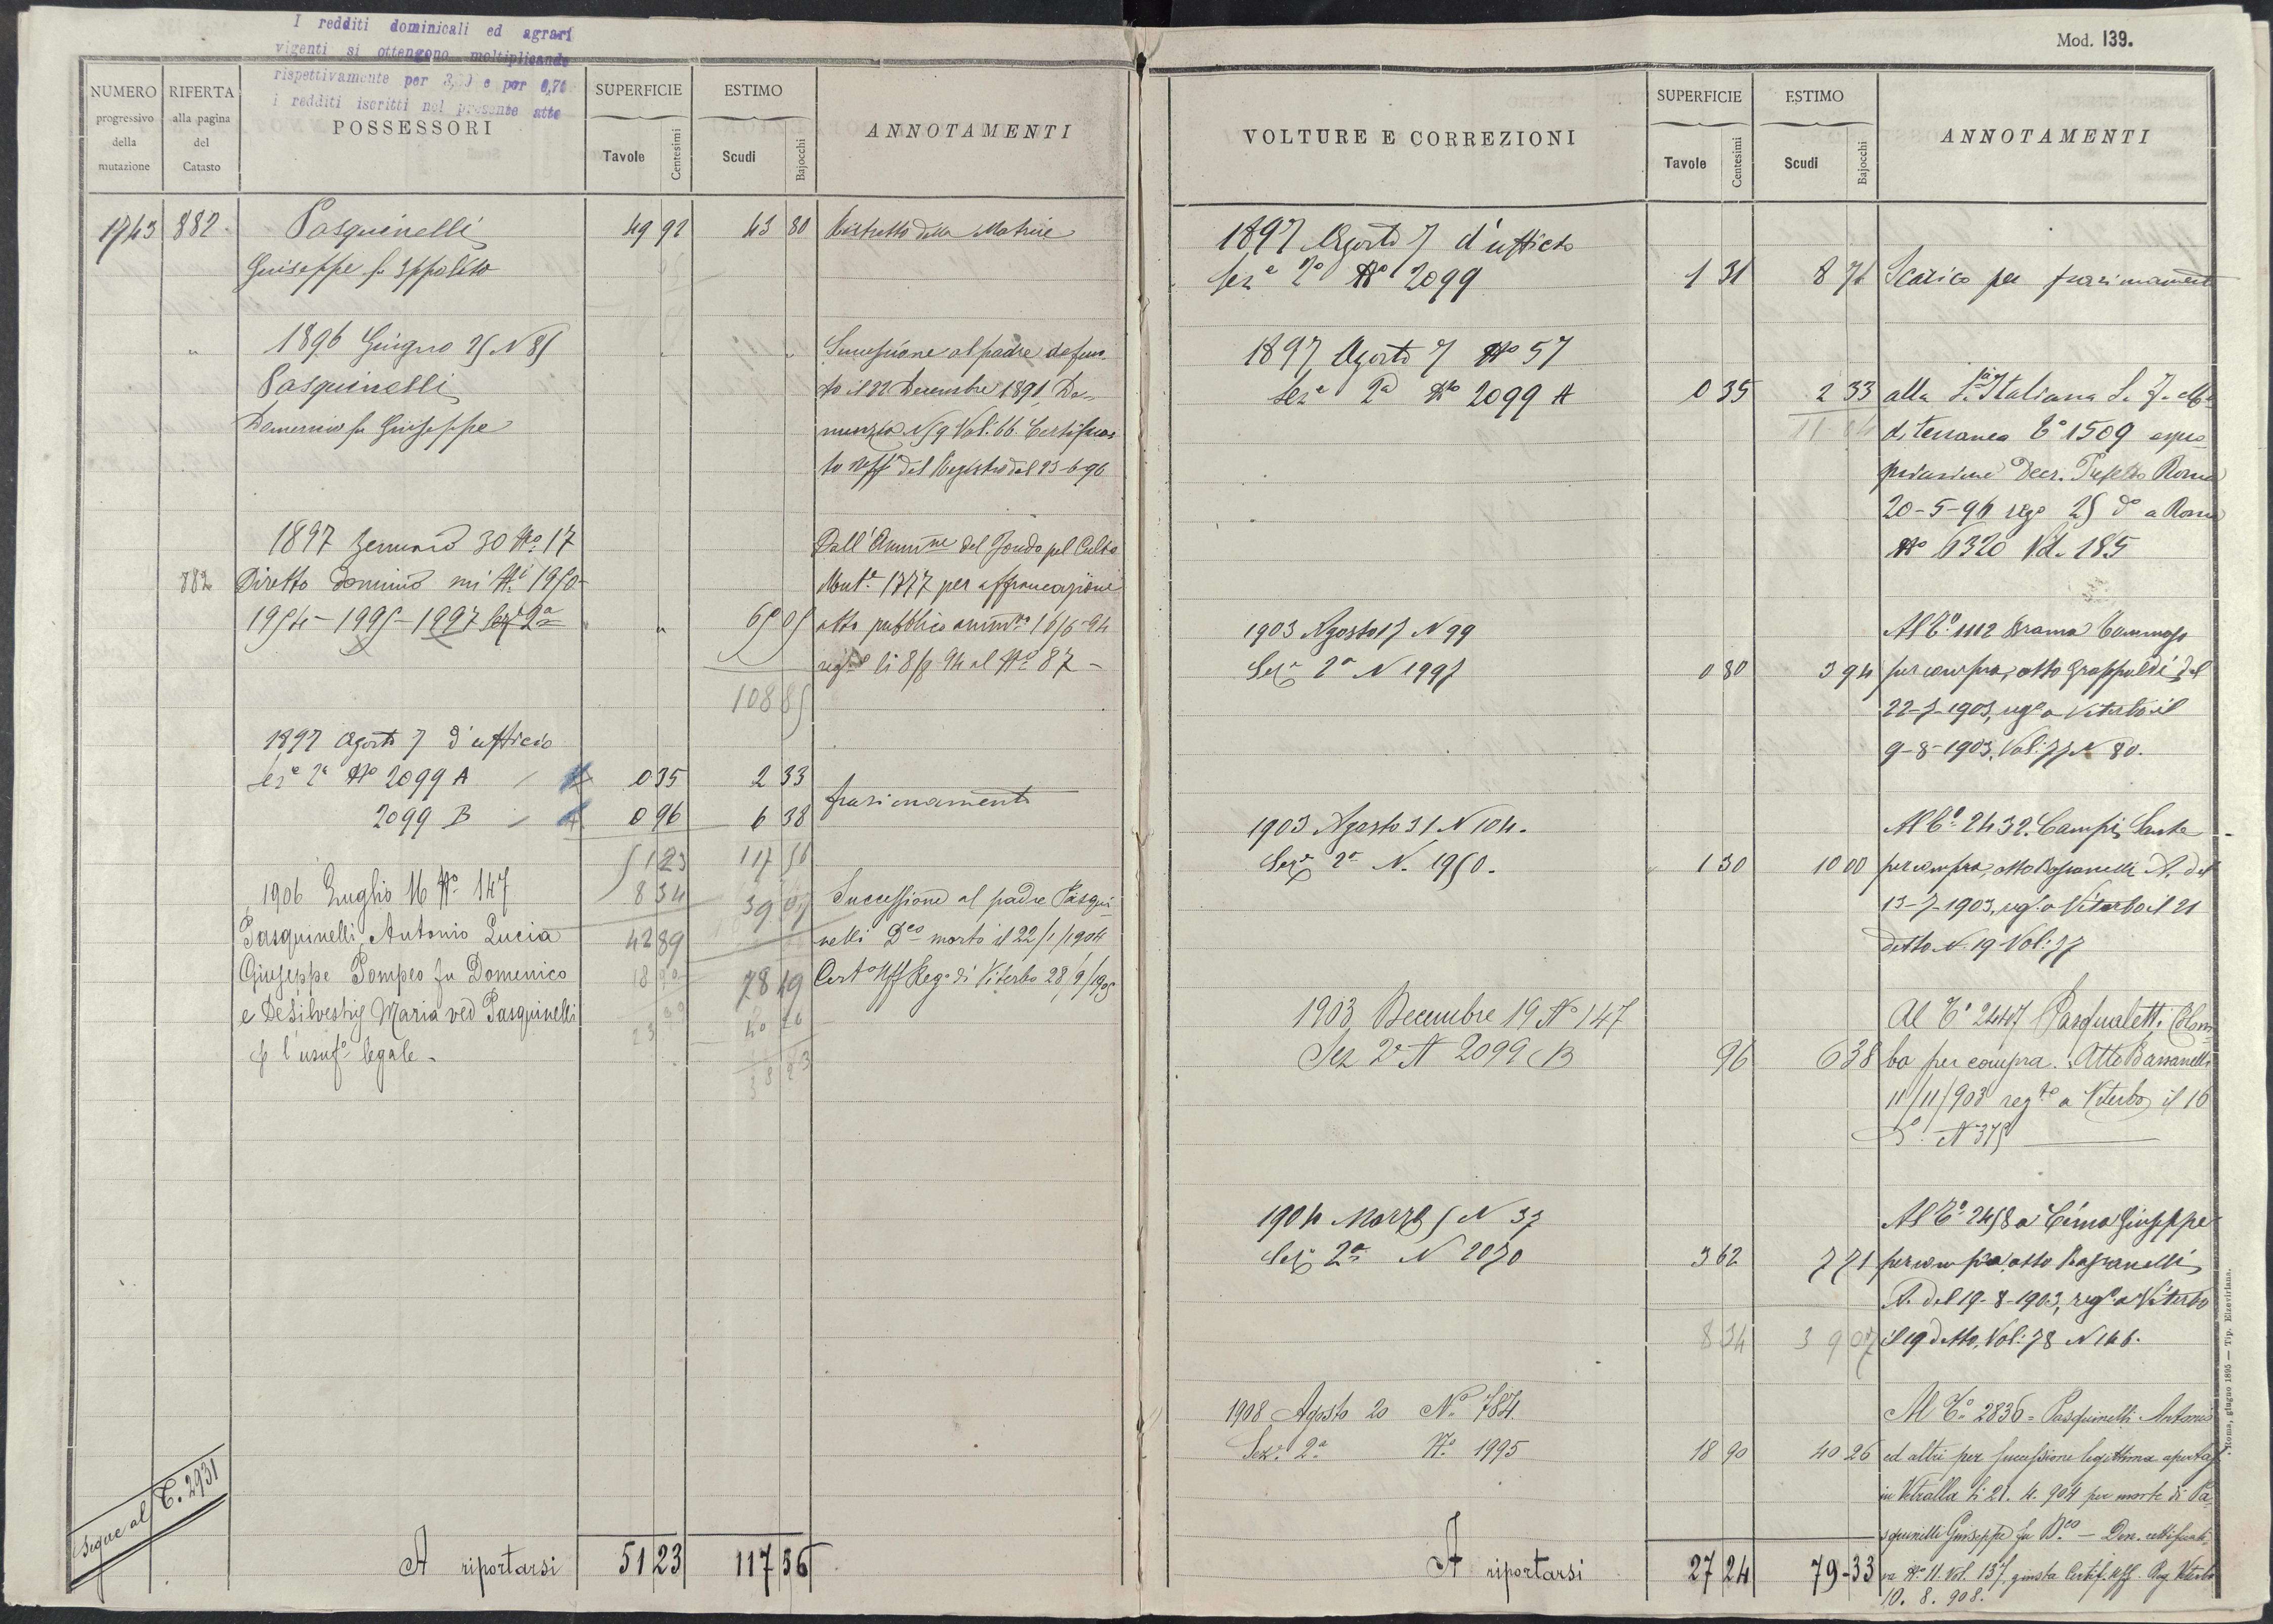 I redditi dominicali ed agrari
vigenti si ottengono moltiplicando
rispettivamente per e per 0,70
i redditi iscritti nel presente atto
NUMERO progressivo della mutazione
RIFERTA alla pagina del Catasto
POSSESSORI
SUPERFICIE
Tavole Centesimi
ESTIMO
Scudi Bajocchi
ANNOTAMENTI
1943 882 Pasquinelli 49 92 43 80 Ristretto della Matrice
Giuseppe fu Ippolito
" 1896 Giugno 25 N 85 " " Successione al padre defun-
Pasquinelli to il 22 Decembre 1891 De-
Domenico fu Giuseppe nunzia N 9 Vol. 66. Certifica-
to Uff° del Registro del 23-6-96
1897 Gennaio 30 N° 17 Dall'Ammne del Fondo pel Culto
882 Diretto dominio ni N.i 1950- Mut.e 1777 per affrancazione
1954-1995-1997 Sez 2a " " 65 05 atto pubblico ammvo 16/6-94
li 8/9-94 al N° 87-
108 85
1897 Agosto 7 d'ufficio
Sez.e 2a N° 2099 A 0 35 2 33
2099 B 0 96 6 38 frazionamento
51 23 117 56
1906 Luglio 16 N° 147 8 34 39 07 Successione al padre Pasqui-
Pasquinelli Antonio Lucia 42 89 nelli Dco morto il 22/1/1904
Giuseppe Pompeo fu Domenico 18 90 78 49 Certo Uff Rego di Viterbo 28/9/1905
e DeSilvestris Maria ved Pasquinelli 23 99 40 26
p l'usufo legale - 38 23
Segue al C. 2931
A riportarsi 51 23 117 56
Mod. 139.
VOLTURE E CORREZIONI
SUPERFICIE
Tavole Centesimi
ESTIMO
Scudi Bajocchi
ANNOTAMENTI
1897 Agosto 7 d'ufficio
Sez.e 2a N° 2099 1 31 8 71 Scarico per frazionamento
1897 Agosto 7 N° 57
Sez.e 2a N° 2099 A 0 35 2 33 alla S.à Italiana S. F. Me-
11 04 diterranea C° 1509 espro-
priazione Decr. Prefetto Roma
20-5-96 rego 25 do a Roma
N° 6320 Vol. 185
1903 Agosto 17 N 99 Al C° 1112 Brama Tommaso
Sez.e 2a N 1997 0 80 3 94 per compra, atto Grappoldi del
22-7-1903, rego a Viterbo il
9-8-1903. Vol: 77 N 80.
1903 Agosto 31 N 104. Al C° 2432. Campi Sante
Sez.e 2a N. 1950. 1 30 10 00 per compra, atto Bassanelli A. del
13-7-1903, rego a Viterbo il 21
detto N. 19 Vol: 77
1903 Decembre 19 N° 147 Al C° 2447 Pasqualetti Colom-
Sez 2a N 2099 B 96 6 38 bo per compra. Atto Bassanelli
11/11/903 regto a Viterbo il 16
Do N 375
1904 Marzo 5 N 37 Al C° 2458 a Cima Giuseppe
Sez.e 2a N 2070 3 62 7 71 per compra atto Bassanelli
A. del 19-8-1903, rego a Viterbo
8 34 39 07 il 19 detto, Vol: 78 N 146.
1908 Agosto 20 N° 784. Al C° 2836 = Pasquinelli Antonio
Sez.e 2a N° 1995 18 90 40 26 ed altri per successione legittima apertasi
in Vetralla li 21. 4. 904 per morte di Pa-
squinelli Giuseppe fu Dco - Den. rettificati-
A riportarsi 27 24 79-33 va N° 11. Vol. 137 giusta Certif. Uff. Reg Viterbo
10. 8. 908.
Roma, giugno 1895 — Tip. Elzeviriana.